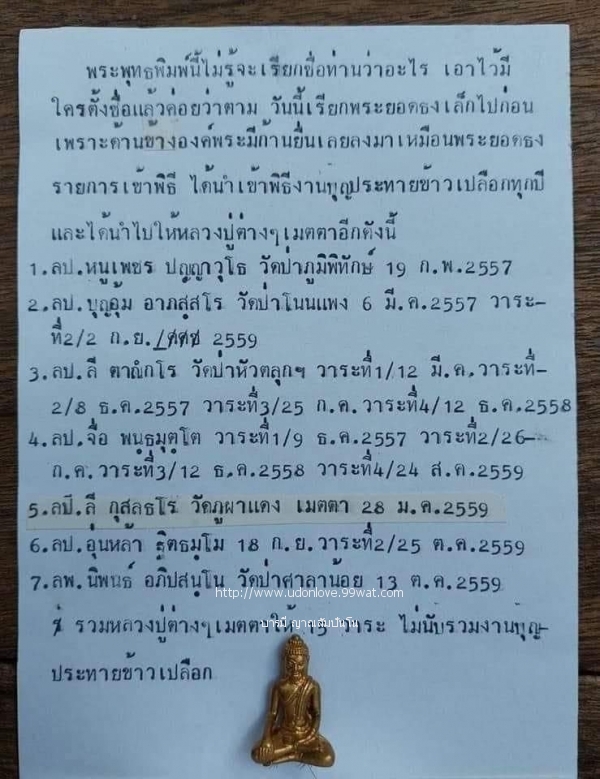 พระพุทธพิมพ์นี้ไม่รู้จะเรียกชื่อท่านว่าอะไร เอาไว้มี
ใครตั้งชื่อแล้วค่อยว่าตาม วันนี้เรียกพระยอดธงเล็กไปก่อน
เพราะด้านข้างองค์พระมีก้านยื่นเลยลงมาเหมือนพระยอดธง
รายการเข้าพิธี ได้นำเข้าพิธีงานบุญประทายข้าวเปลือกทุกปี
และได้นำไปให้หลวงปู่ต่างๆเมตตาอีกดังนี้
1.ลป.หนูเพชร ปญฺญาวุโธ วัดป่าภูมิพิทักษ์ 19 ก.พ.2557
2.ลป.บุญอุ้ม อาภสฺสโร วัดป่าโนนแพง 6 มี.ค.2557 วาระ-
ที่2/2 ก.ย./ 2559
3.ลป.ลี ตาณํกโร วัดป่าหัวตลุกฯ วาระที่1/12 มี.ค.วาระที่-
2/8 ธ.ค.2557 วาระที่3/25 ก.ค.วาระที่4/12 ธ.ค.2558
4.ลป.จื่อ พนฺธมุตฺโต วาระที่1/9 ธ.ค.2557 วาระที่2/26-
ก.ค.วาระที่3/12 ธ.ค.2558 วาระที่4/24 ส.ค.2559
5.ลป.ลี กุสลธโร วัดภูผาแดง เมตตา 28 ม.ค.2559
6.ลป.อุ่นหล้า ฐิตธมฺโม 18 ก.ย.วาระที่2/25 ต.ค.2559
7.ลพ.นิพนธ์ อภิปสนฺโน วัดป่าศาลาน้อย 13 ต.ค.2559
http://www.udonlove.99wat.com
รวมหลวงปู่ต่างๆเมตตาให้ 15 วาระ ไม่นับรวมงานบุญ-
บารมี ญาณสัมปันโน
ประทายข้าวเปลือก